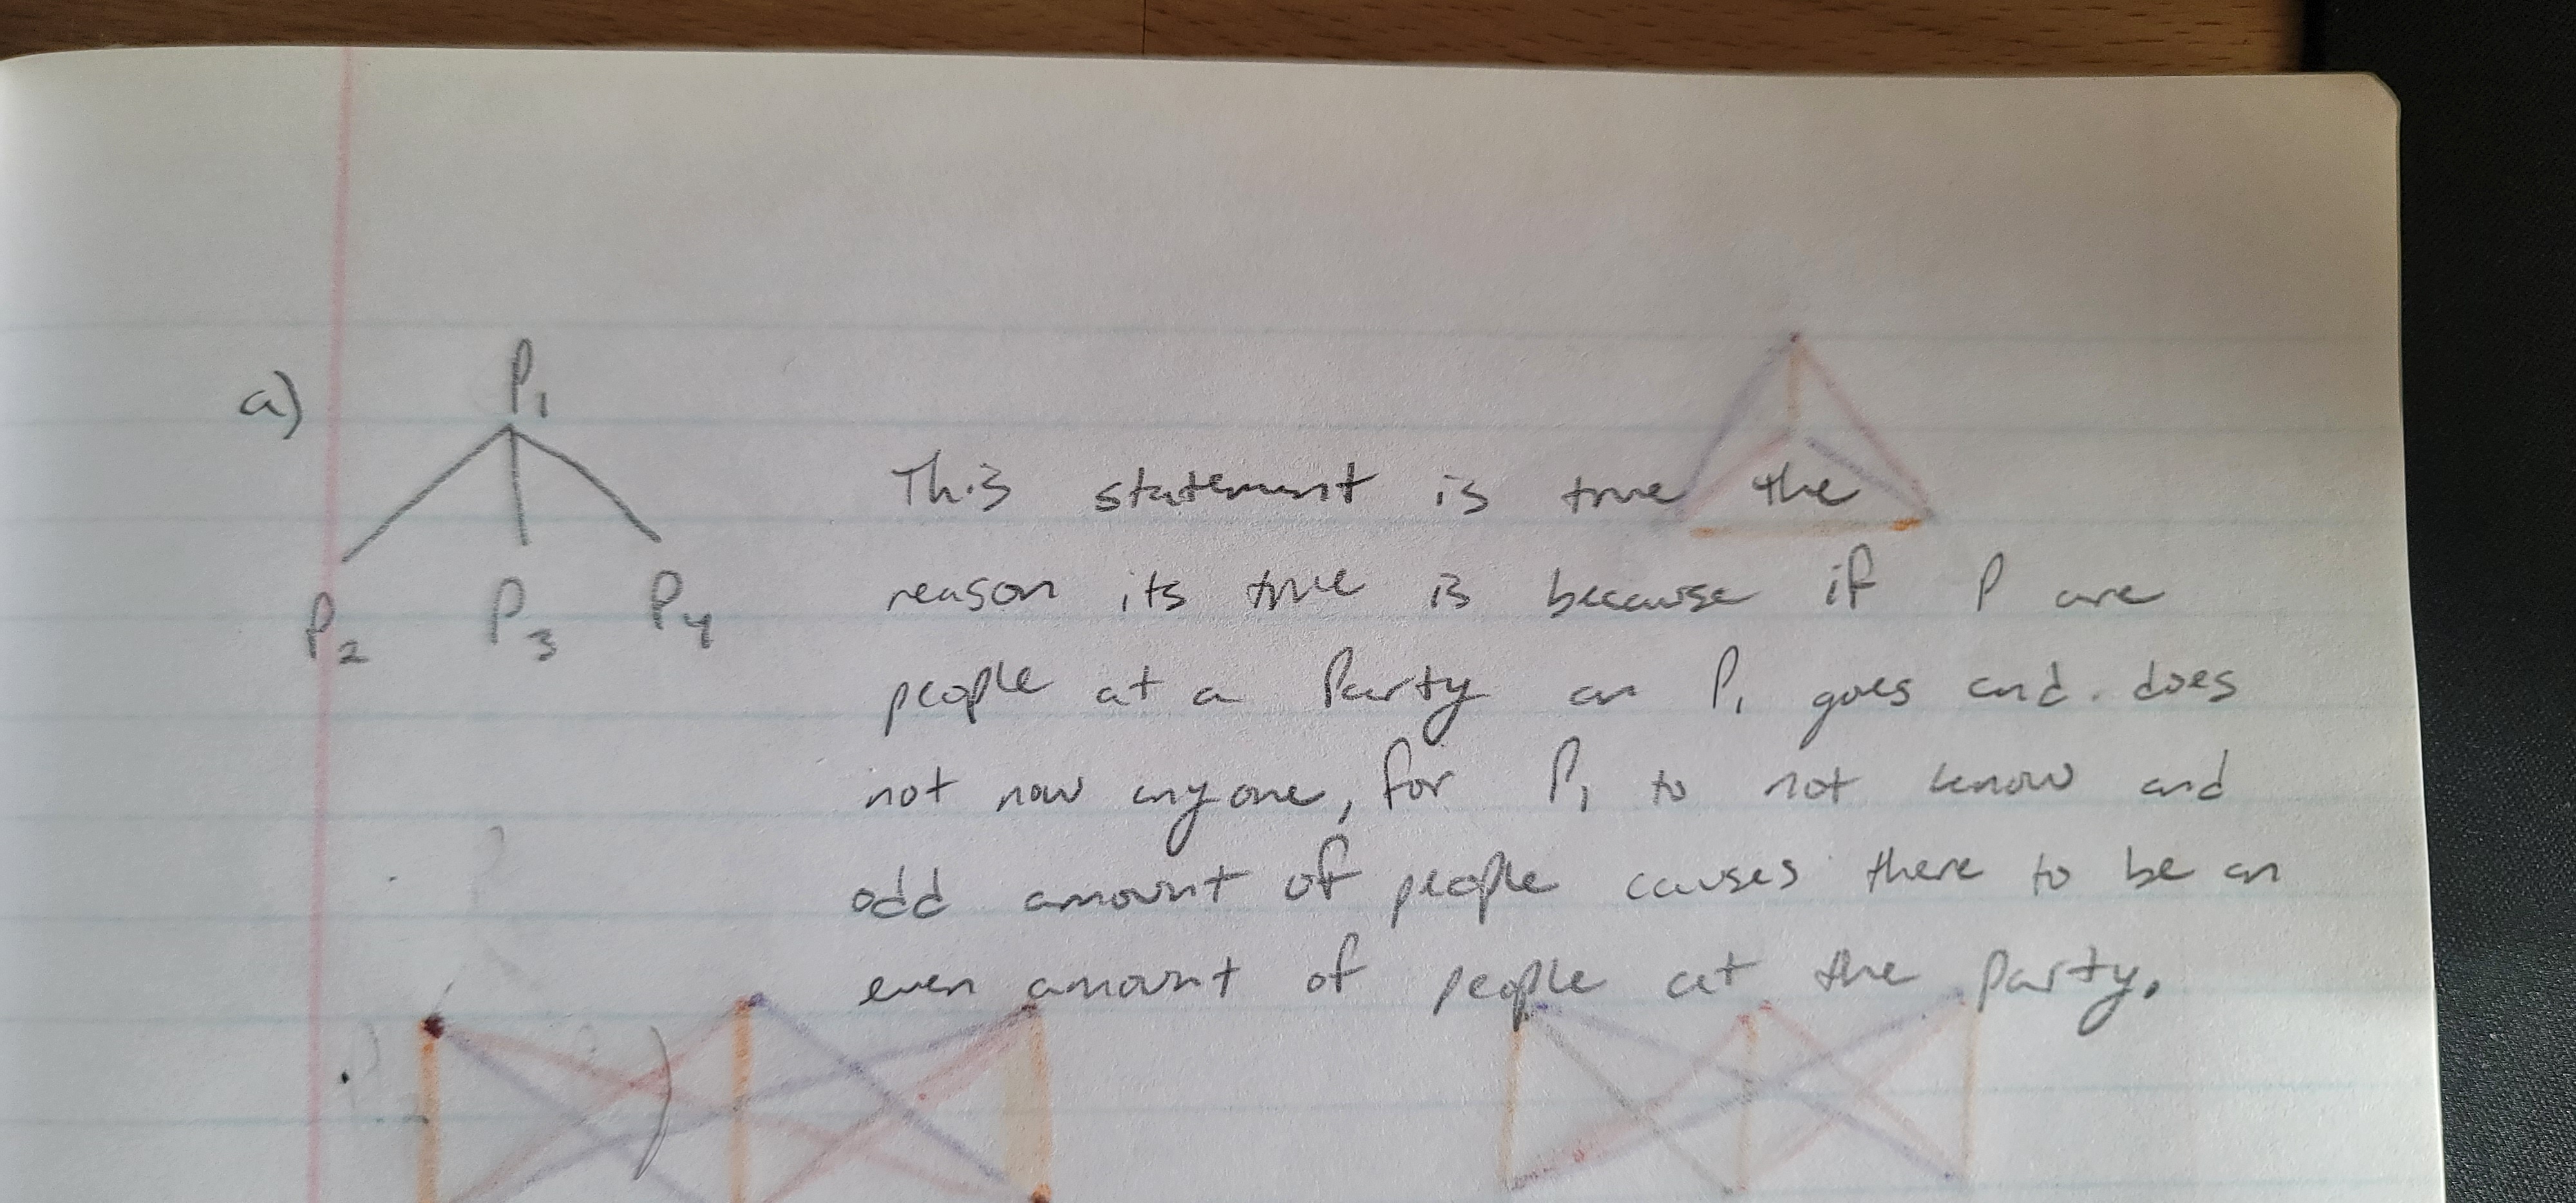 a)
P1
P2 P3 P4
This statement is true the
reason its true is because if P are
people at a Party an P1 goes and does
not now anyone, for P1 to not know and
odd amount of people causes there to be an
even amount of people at the party.